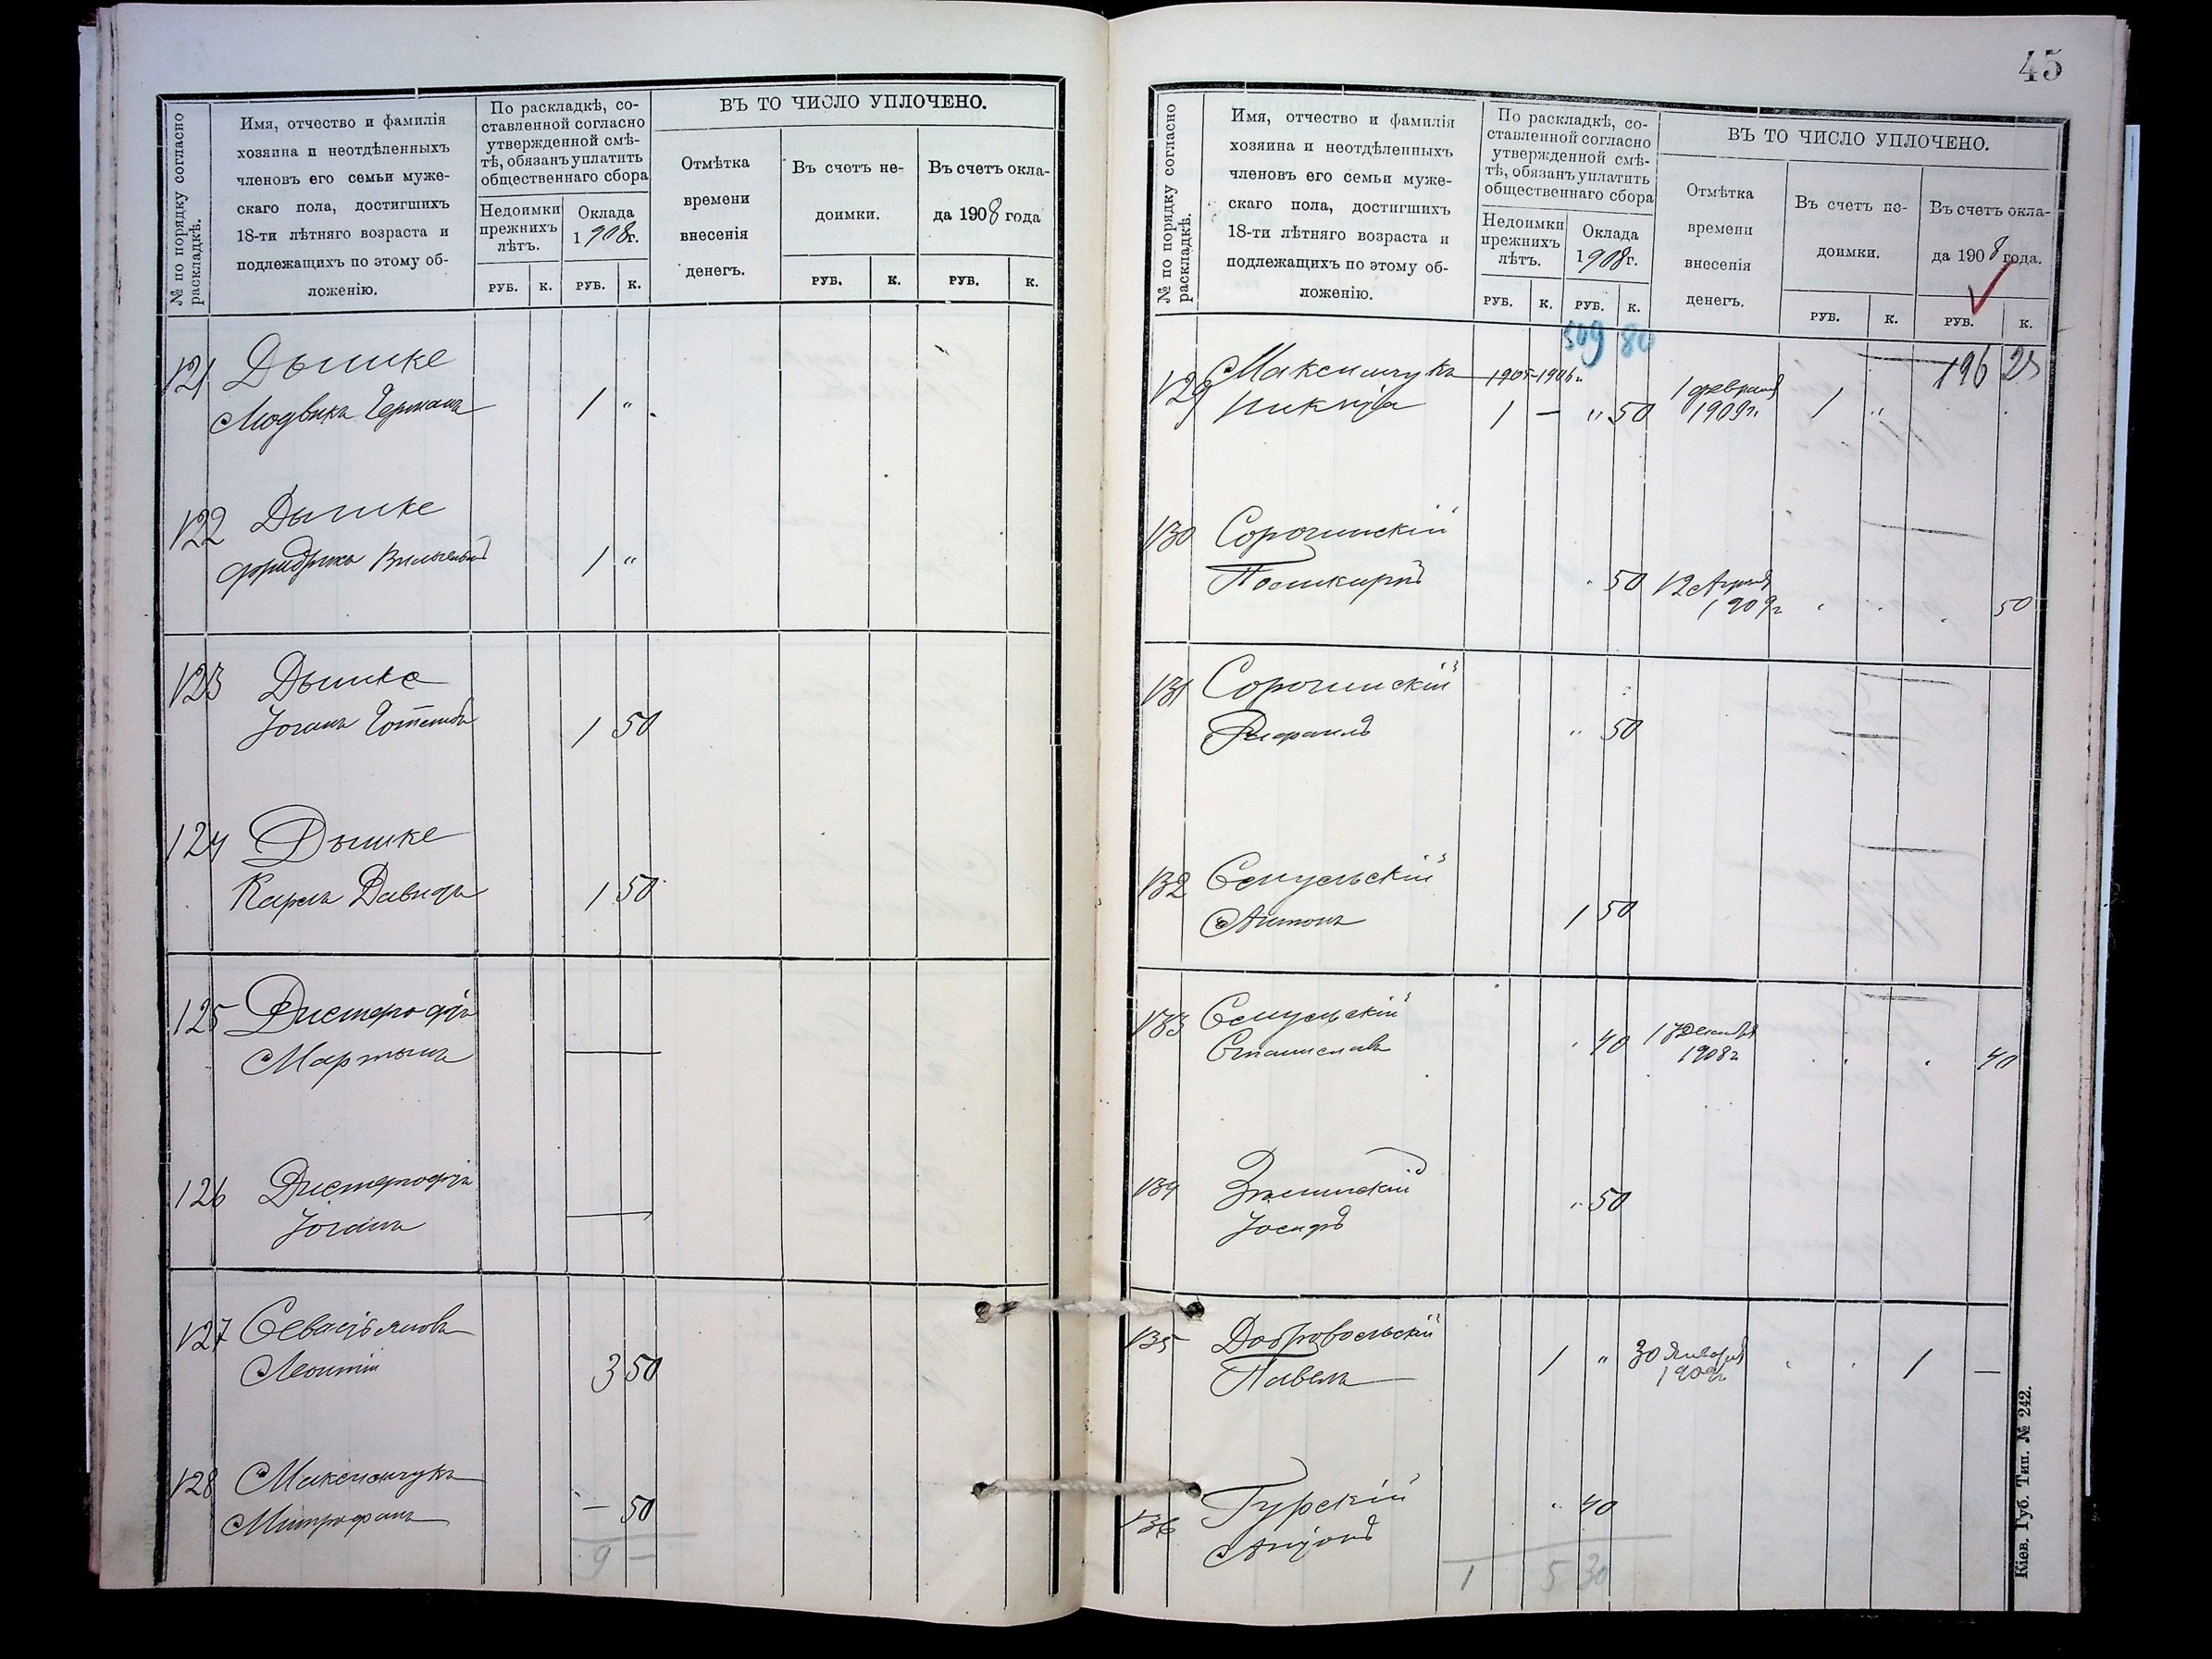 45
№ по порядку согласно раскладкѣ.
Имя, отчество и фамилія
хозяина и неотдѣленныхъ
членовъ его семьи муже-
скаго пола, достигшихъ
18-ти лѣтняго возраста и
подлежащихъ по этому об-
ложенію.
По раскладкѣ, со-
ставленной согласно
утвержденной смѣ-
тѣ, обязанъ уплатить
общественнаго сбора
Недоимки
прежнихъ
лѣтъ.
Оклада
1908г.
ВЪ ТО ЧИСЛО УПЛОЧЕНО.
Отмѣтка
времени
внесенія
денегъ.
Въ счетъ не-
доимки.
Въ счетъ окла-
да 1908 года
РУБ. К. РУБ. К. РУБ. К. РУБ. К.
121 Дышке
Людвикъ Германъ 1 "
122 Дышке
Фридрихъ 1 "
123 Дышке
Іоганъ Готлибъ 1 50
124 Дышке
Карлъ Давидъ 1 50
125
Мартынъ
126
Іоганъ
127 Севастьяновъ
Леонтій 3 50
128 Максимчукъ
Митрофанъ — 50
9 —
№ по порядку согласно раскладкѣ.
Имя, отчество и фамилія
хозяина и неотдѣленныхъ
членовъ его семьи муже-
скаго пола, достигшихъ
18-ти лѣтняго возраста и
подлежащихъ по этому об-
ложенію.
По раскладкѣ, со-
ставленной согласно
утвержденной смѣ-
тѣ, обязанъ уплатить
общественнаго сбора
Недоимки
прежнихъ
лѣтъ.
Оклада
1908г.
ВЪ ТО ЧИСЛО УПЛОЧЕНО.
Отмѣтка
времени
внесенія
денегъ.
Въ счетъ не-
доимки.
Въ счетъ окла-
да 1908 года.
РУБ. К. РУБ. К. РУБ. К. РУБ. К.
509 80
196 25
129 Максимчукъ 1905-1906г 1 февраля
Никита 1 — " 50 1909г. 1 "
130 Сорочинскій
Поликарпъ 50 12 Апрѣля
1909г 50
131 Сорочинскій
Рафаилъ " 50
132 Семульскій
Антонъ 1 50
133 Семульскій
Станиславъ 40 17 Декабря
1908г 40
134
Іосифъ " 50
135 Добровольскій
Павелъ 1 " 30 Января
1909г 1 —
136 Гурскій
Антонъ " 40
1 5 30
Кіев. Губ. Тип. № 242.